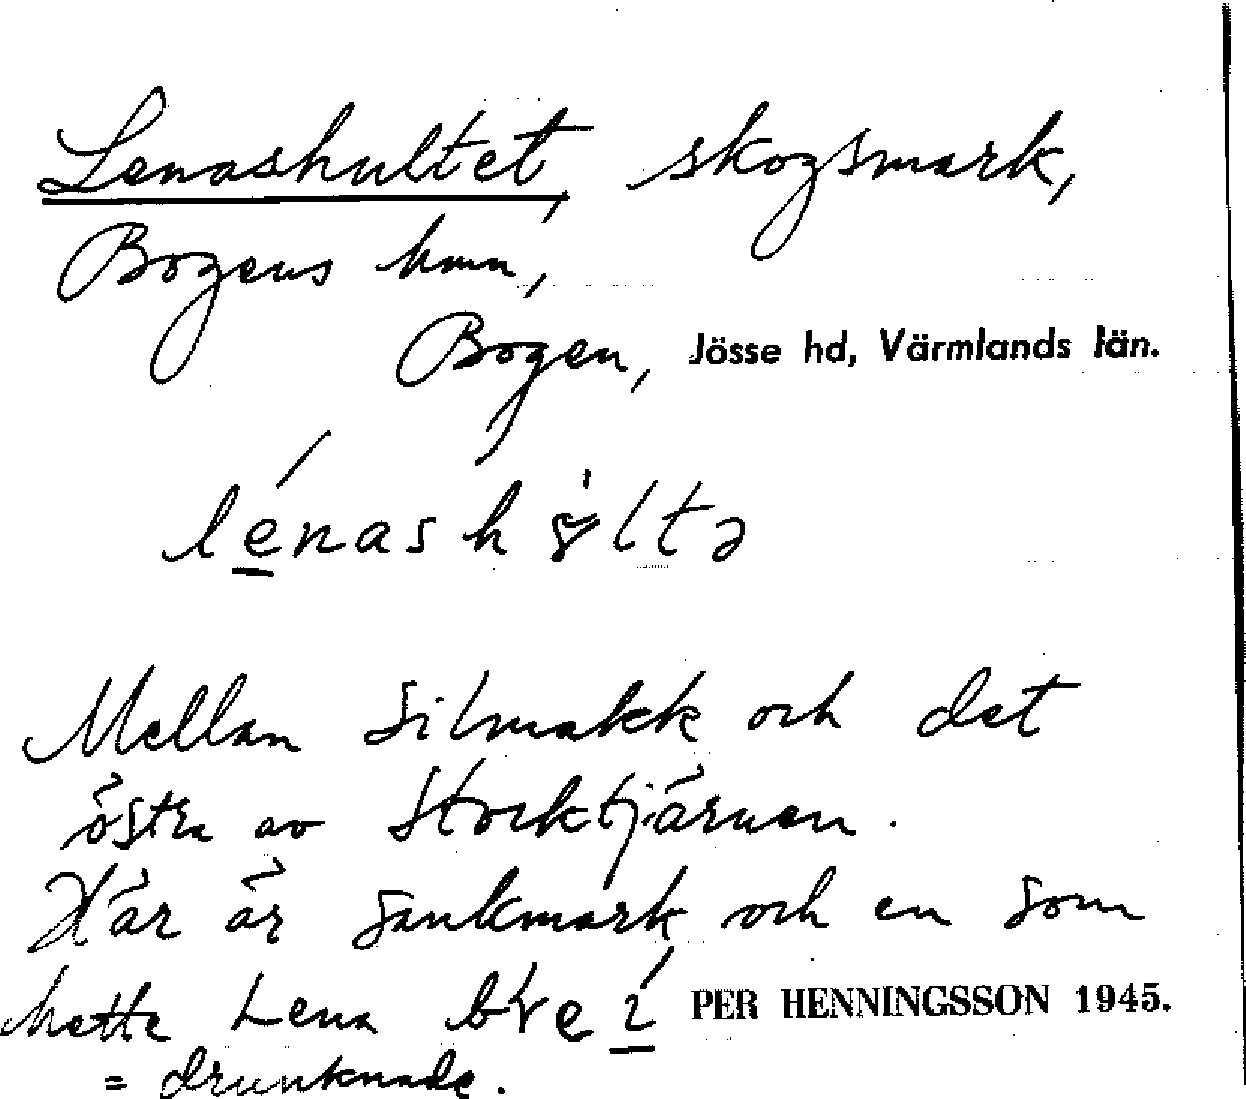 Lenashultet, skogsmark,
Bogens hmn,
Bogen, Jösse hd, Värmlands län.
Mellan Silmakk och det
östra av Stocktjärnen.
Här är sankmark och en som
hette Lena
PER HENNINGSSON 1945.
= drunknade.